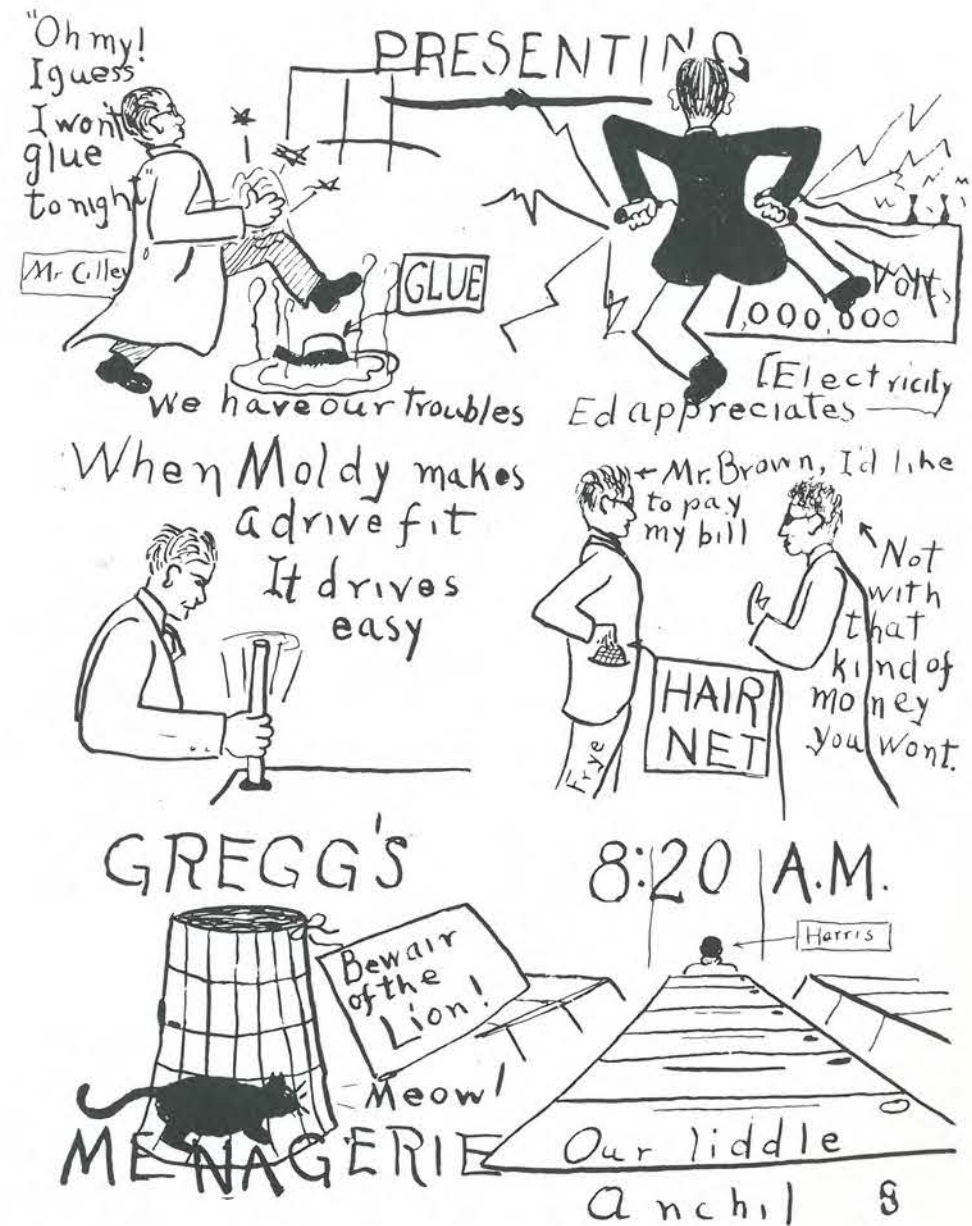 PRESENTING
"Oh my!
I guess
I won't
glue
tonight"
Mr Cilley
GLUE
We have our troubles
Volts
1,000,000
[Electricity
Ed appreciates
When Moldy makes
a drive fit
It drives
easy
Mr. Brown, I'd like
to pay
my bill
Not
with
that
kind of
money
you wont.
HAIR
NET
Frye
GREGG'S
Bewair
of the
Lion!
Meow!
MENAGERIE
8:20 A.M.
Harris
Our liddle
Anchil